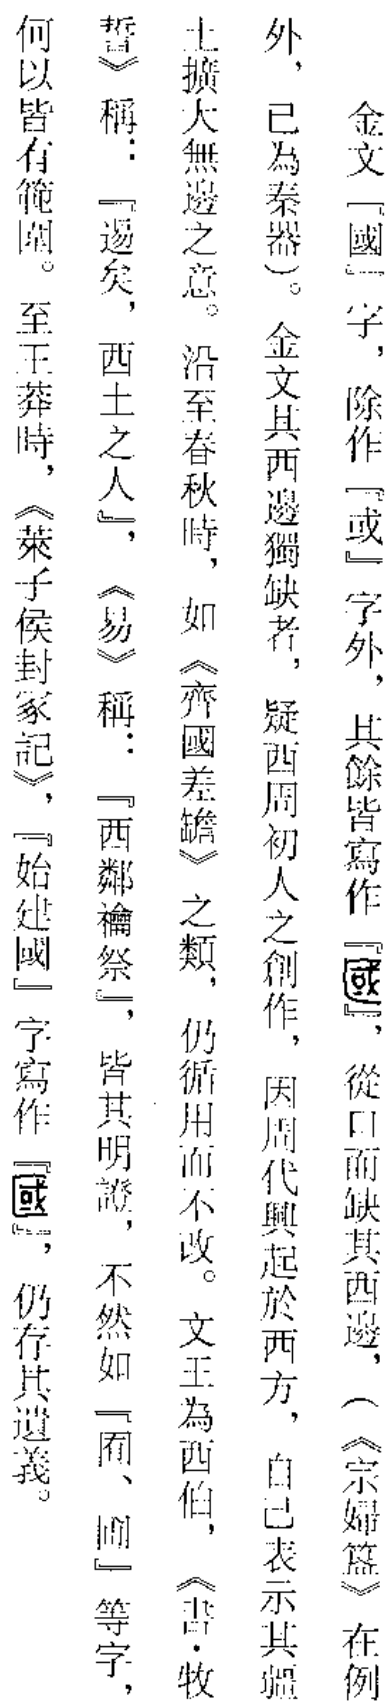 金文『國』字，除作『或』字外，其餘皆寫作『國』，從口而缺其西邊，（《宗婦簋》在例
外，已為秦器）。金文其西邊獨缺者，疑西周初人之創作，因周代興起於西方，自己表示其疆
土擴大無邊之意。沿至春秋時，如《齊國差䍋》之類，仍循用而不改。文王為西伯，《書·牧
誓》稱：『逷矣，西土之人』，《易》稱：『西鄰禴祭』，皆其明證，不然如『囿、圃』等字，
何以皆有範圍。至王莽時，《萊子侯封冢記》，『始建國』字寫作『國』，仍存其遺義。